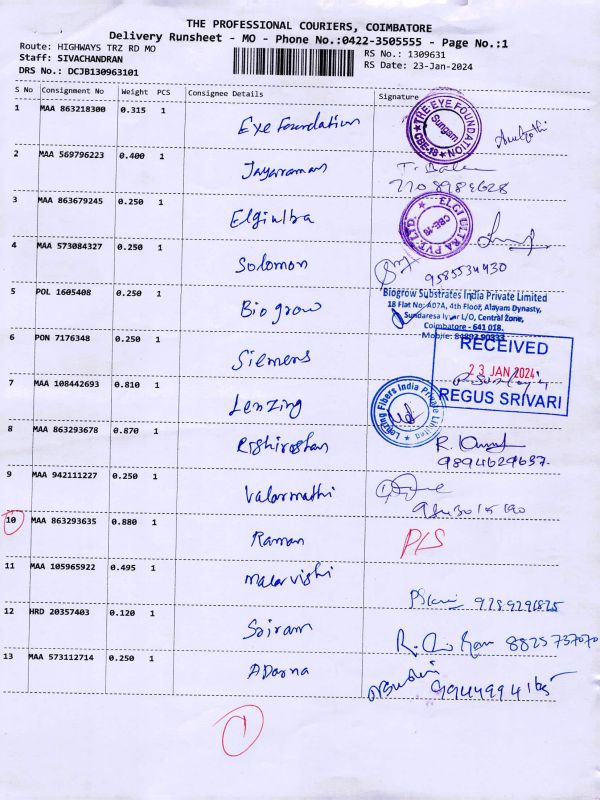 THE PROFESSIONAL COURIERS, COIMBATORE
Delivery Runsheet - MO - Phone No.:0422-3505555 - Page No.:1
Route: HIGHWAYS TRZ RD MO
RS No.: 1309631
Staff: SIVACHANDRAN
RS Date: 23-Jan-2024
DRS No.: DCJB130963101
S No Consignment No Weight PCS Consignee Details Signature
1 MAA 863218300 0.315 1 Eye Foundation
THE EYE FOUNDATION
Sungam
CBE-18
2 MAA 569796223 0.400 1 Jayaraman
7708984628
3 MAA 863679245 0.250 1 Elgiultra
ELGI ULTRA PVT. LTD.
CBE-18
4 MAA 573084327 0.250 1 Solomon
9585534430
5 POL 1605408 0.250 1 Biogrow
Biogrow Substrates India Private Limited
18 Flat No: A07A, 4th Floor, Alayam Dynasty,
Sundaresa Iyer L/O, Central Zone,
Coimbatore - 641 018.
6 PON 7176348 0.250 1 Siemens
RECEIVED
23 JAN 2024
REGUS SRIVARI
7 MAA 108442693 0.810 1 Lenzing
Lenzing Fibers India Private Limited
8 MAA 863293678 0.870 1 Rishiroshan
9894629637
9 MAA 942111227 0.250 1 Valarmathi
10 MAA 863293635 0.880 1 Raman P/S
11 MAA 105965922 0.495 1 Malarvishi
12 HRD 20357403 0.120 1 Sriram
8825737070
13 MAA 573112714 0.250 1 Aparna
9944994165
1